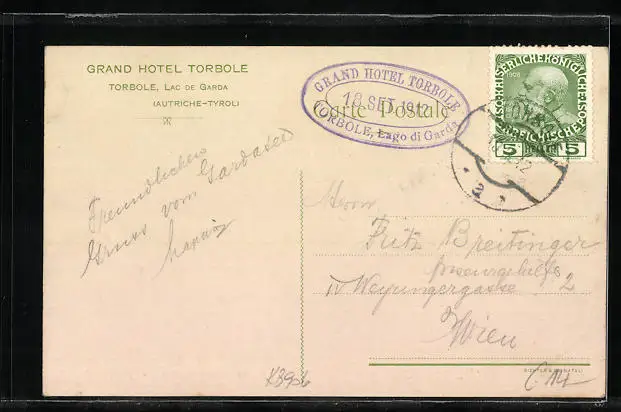 GRAND HOTEL TORBOLE
TORBOLE, LAC DE GARDA
(AUTRICHE-TYROL)
GRAND HOTEL TORBOLE
18 SET. 1912
TORBOLE, Lago di Garda
Carte Postale
KAISERLICHE KÖNIGLICHE
1908
ÖSTERREICHISCHE
5 HELLER 5
a
Freundlichen
Gruss vom Gardasee
Herrn
Fritz Breitinger
IV Weyringergasse 2
Wien
K3906